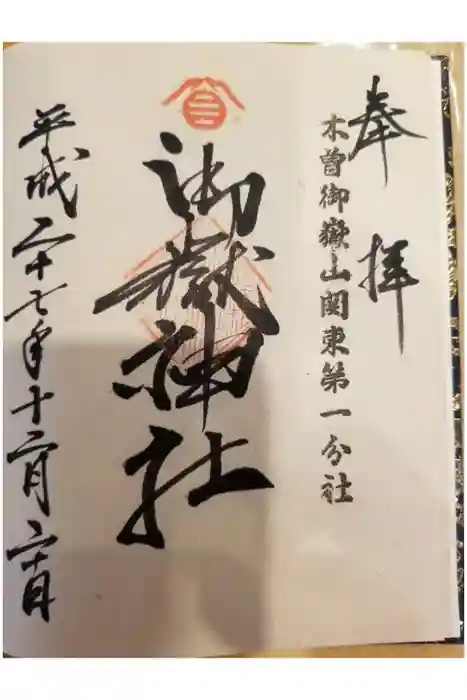 奉拝
木曽御嶽山関東第一分社
御嶽神社
平成二十七年十二月二十日